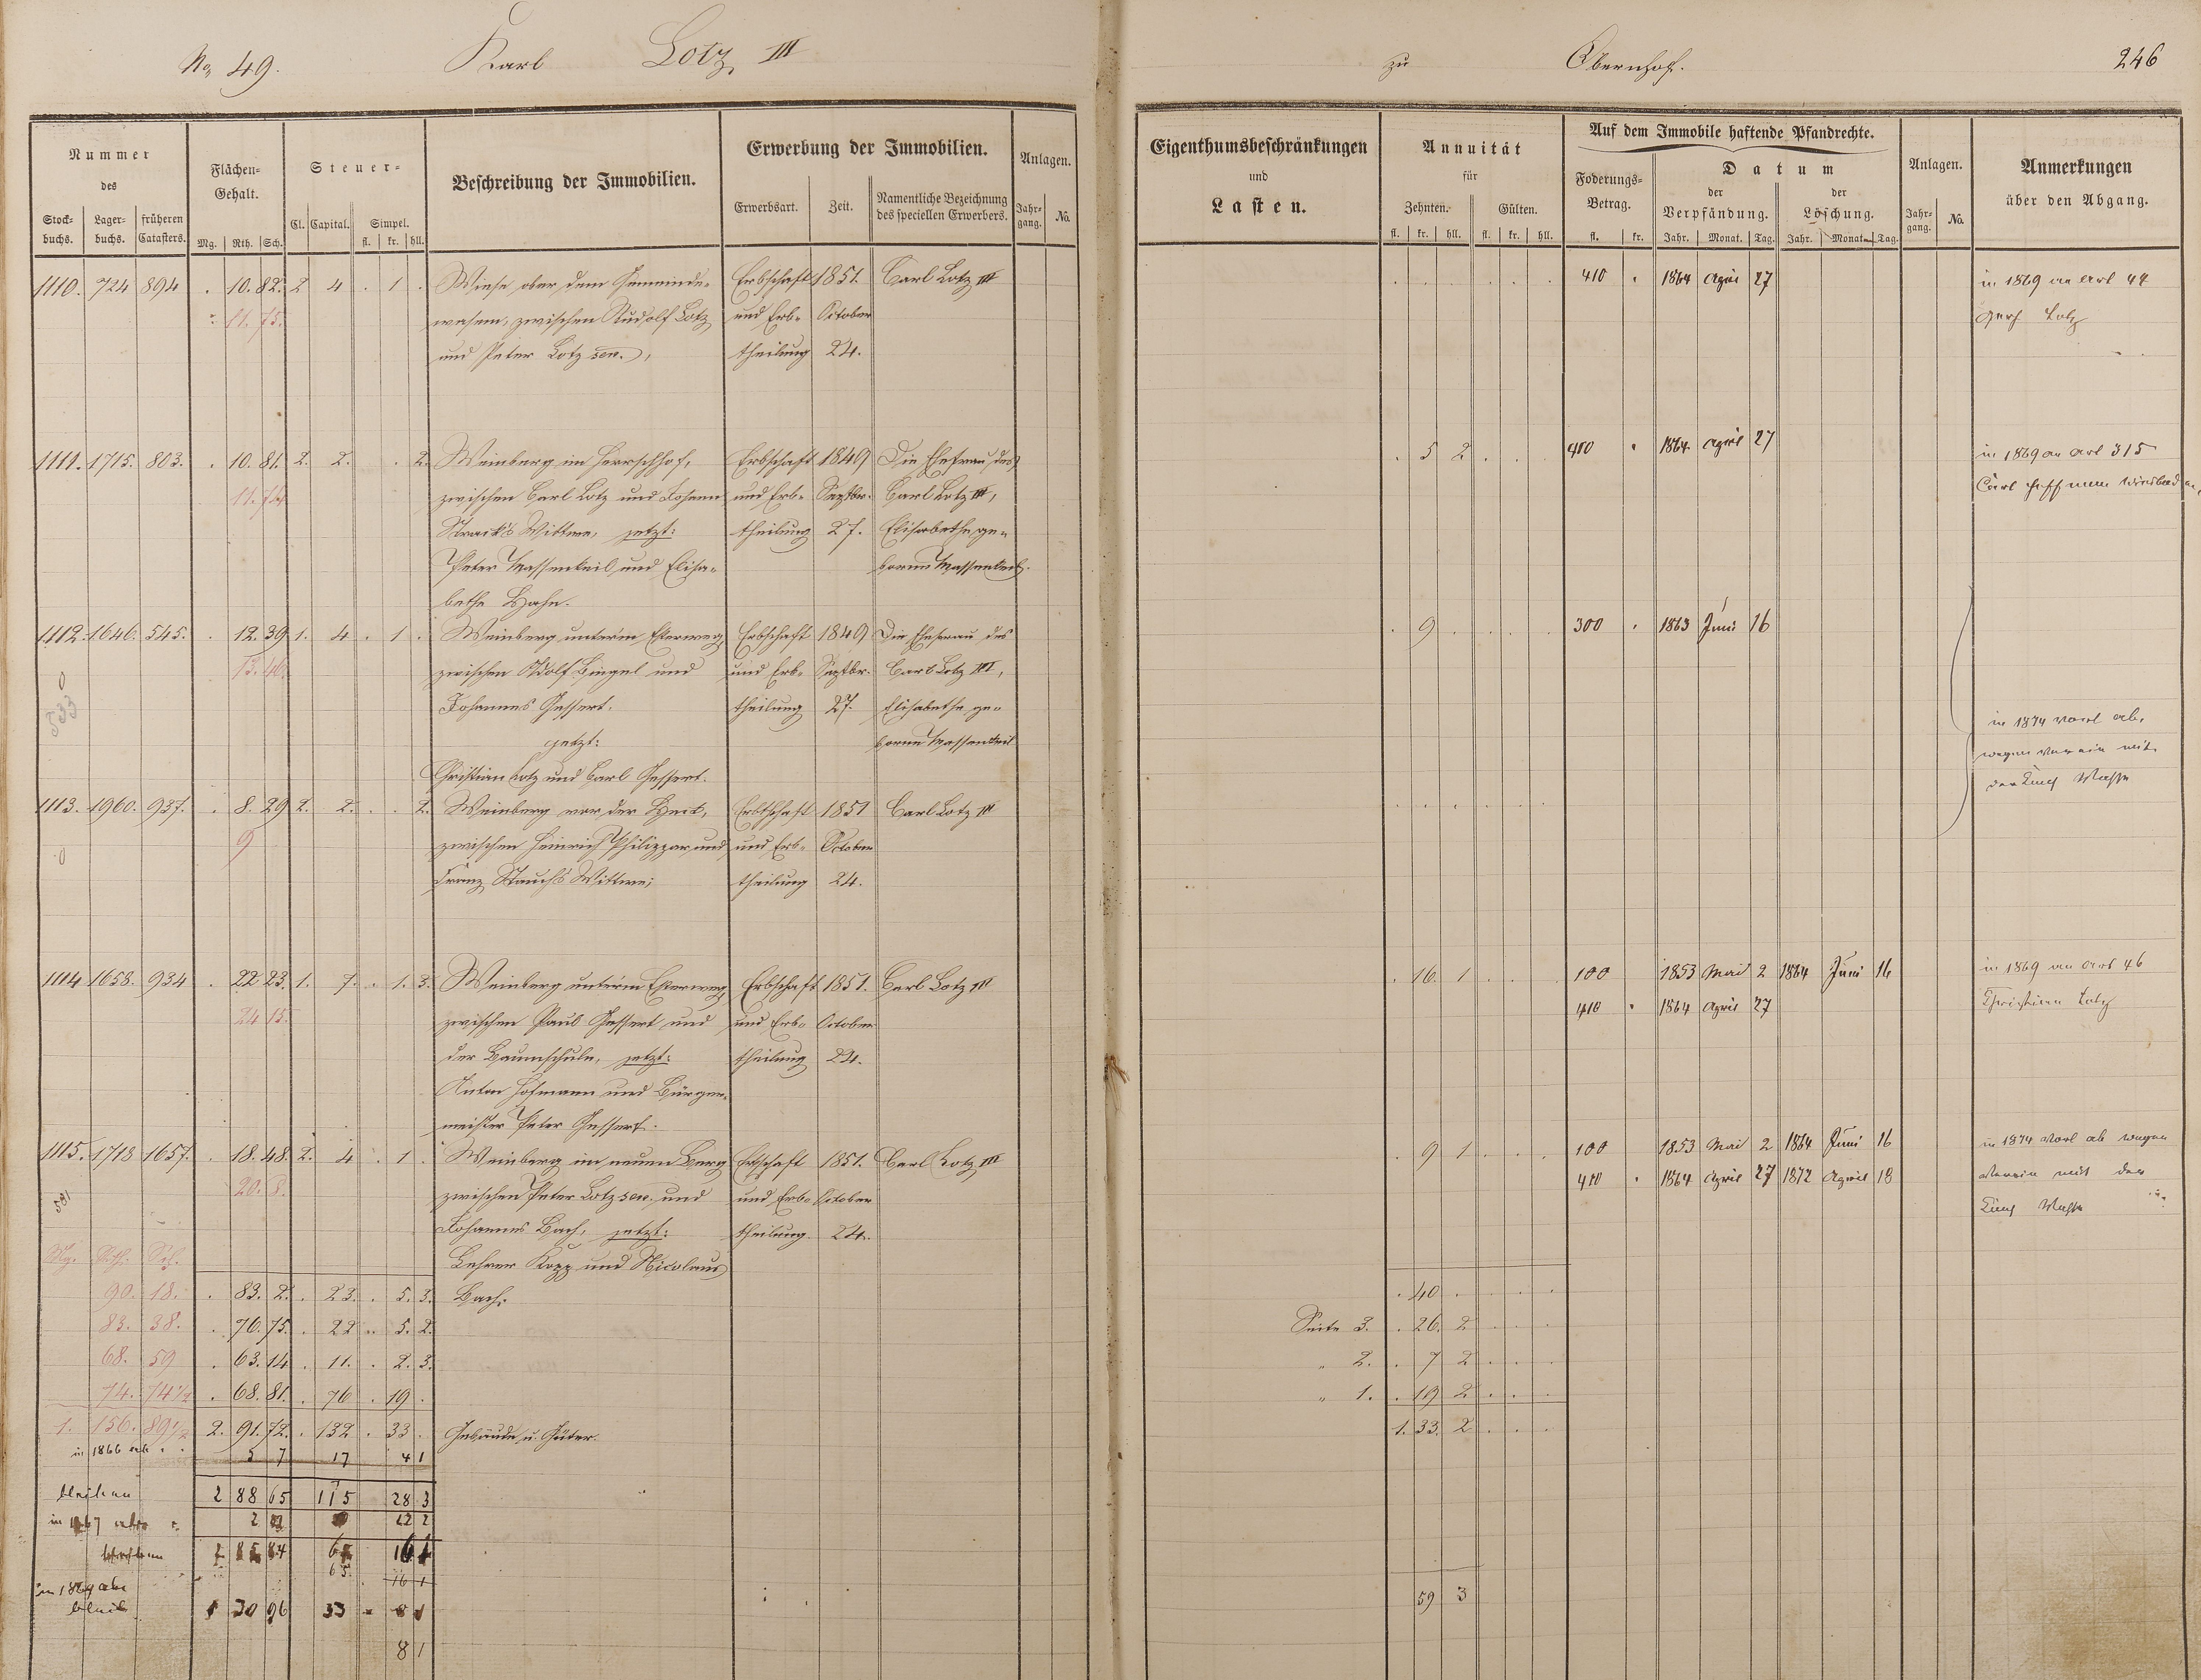 No 49. Karl Lotz III zu Obernhof. 246
Nummer des
Stock-buchs. Lager-buchs. früheren Catasters.
Flächen-Gehalt.
Mg. Rth. Sch.
Steuer-
Cl. Capital. Simpel.
fl. kr. hll.
Beschreibung der Immobilien.
Erwerbung der Immobilien.
Erwerbsart. Zeit. Namentliche Bezeichnung des speciellen Erwerbers.
Anlagen.
Jahr-gang. No.
Eigenthumsbeschränkungen
und
Lasten.
Annuität
für
Zehnten. Gülten.
fl. kr. hll. fl. kr. hll.
Auf dem Immobile haftende Pfandrechte.
Foderungs-Betrag.
fl. kr.
Datum
der Verpfändung. der Löschung.
Jahr. Monat. Tag. Jahr. Monat. Tag.
Anlagen.
Jahr-gang. No.
Anmerkungen
über den Abgang.
1110. 724 894 . 10. 82. 2 4 . 1 . Wiese ober dem Gemeinde- Erbschaft 1851. Carl Lotz III 410 . 1864 April 27 in 1869 an Arl 44
11. 75. wasem, zwischen Rudolf Lotz und Erb- October Lotz
und Peter Lotz sen., theilung 24.
1111. 1715. 803. . 10. 81. 2. 2. . 2. Weinberg im Herrschhof, Erbschaft 1849 Die Ehefrau des . 5 2 410 . 1864 April 27 in 1869 an Arl 315
11. 74. zwischen Carl Lotz und Johann und Erb- Septbr. Carl Lotz III, Carl Hoffmann
Wittwe, jetzt: theilung 27. Elisabethe ge-
Peter Massenkeil und Elisa- borne Massenkeil.
bethe Hahn.
1112. 1646. 545. . 12. 39 1. 4 . 1 . Weinberg unterm Erbschaft 1849 Die Ehefrau des . 9 300 . 1863 Juni 16
13. 46. zwischen Adolf Bingel und und Erb- Septbr. Carl Lotz III,
533 Johannes Gessert, theilung 27. Elisabethe ge-
jetzt: borne Massenkeil
Christian Lotz und Carl Gessert. in 1874 ab,
wegen mit
der
1113. 1960. 937. . 8. 29 2. 2. . . 2. Weinberg vor der Heck, Erbschaft 1851 Carl Lotz III
9 zwischen Heinrich Philippar und und Erb- October
Franz Wittwe; theilung 24.
1114 1658. 934 . 22 23. 1. 7. . 1. 3. Weinberg unterm Erbschaft 1851. Carl Lotz III . 16. 1 100 1853 Mai 2 1864 Juni 16 in 1869 an Arl 46
24 15. zwischen Paul Gessert und und Erb- October 410 . 1864 April 27 Christian Lotz
der Baumschule, jetzt: theilung 24.
Anton Hofmann und Bürger-
meister Peter Gessert.
1115. 1718 1657. . 18. 48. 2. 4 . 1 . Weinberg im neuen Berg Erbschaft 1851. Carl Lotz III . 9 1 100 1853 Mai 2 1864 Juni 16 in 1874 ab wegen
20. 8. zwischen Peter Lotz sen. und und Erb- October 410 . 1864 April 27 1872 April 18 mit der
581 Johannes Bach, jetzt: theilung 24.
Mg. Rth. Sch. Lehrer Kopp und Nicolaus
90. 18. . 83. 2. . 23. . 5. 3. Bach. . 40 .
83. 38. . 76. 75. . 22 . 5. 2. Seite 3. . 26. 2
68. 59 . 63. 14 . 11. . 2. 3. " 2. . 7 2
74. 74½ . 68. 81. . 76 . 19 . " 1. . 19 2
1. 156. 89½ 2. 91. 72. . 132 . 33 . Gebäude u. Güter. 1. 33. 2
in 1866 ab 3 7 17 4 1
bleiben 2 88 65 115 28 3
in 1867 2 12 2
65 16 1
in 1869 ab 59 3
bleib 1 30 96 33 8 1
8 1